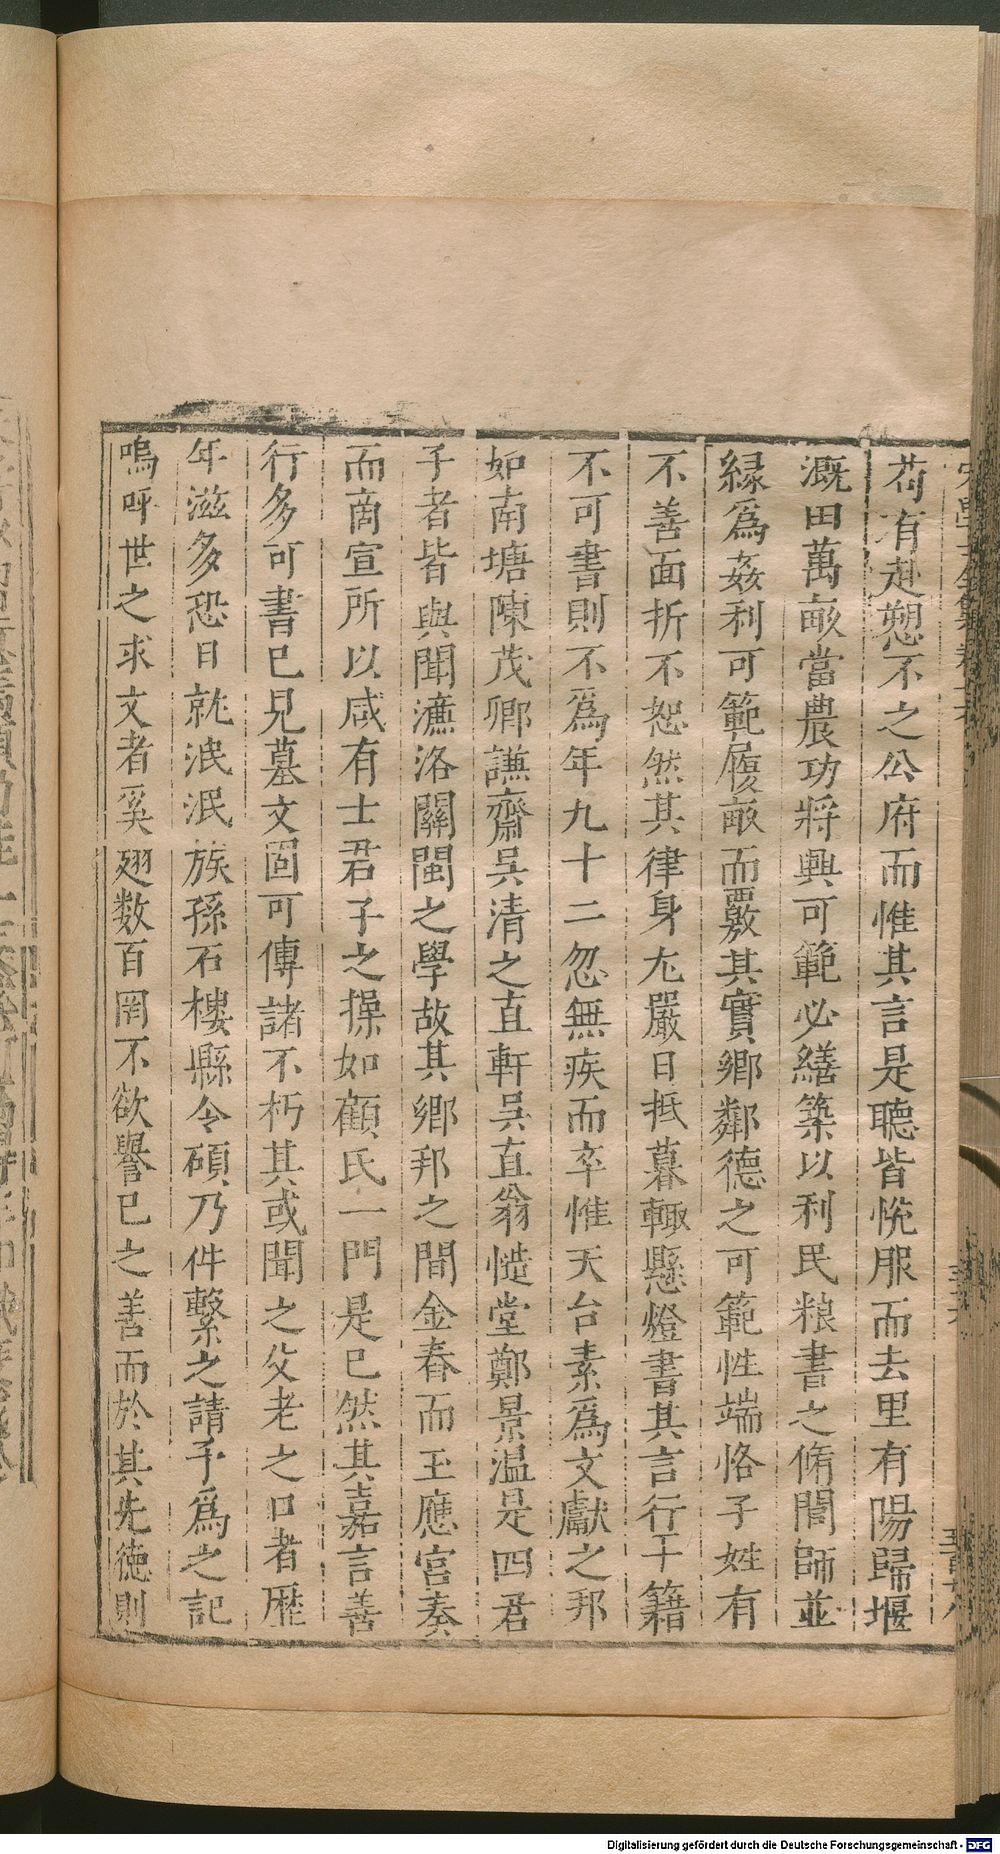 苟有赴愬不之公府而惟其言是聽皆恱服而去里有陽歸堰
溉田萬畝當農功將興可範必繕築以利民粮書之脩閭師並
緑爲姦利可範履畝而覈其實鄉鄰德之可範性端恪子姓有
不善面折不恕然其律身尢嚴日抵暮輙懸燈書其言行于籍
不可書則不爲年九十二忽無疾而卒惟天台素爲文獻之邦
如南塘陳茂卿謙齋吳清之直軒吳直翁慥堂鄭景温是四君
子者皆與聞濂洛關閩之學故其鄉邦之間金舂而玉應宮奏
而啇宣所以咸有士君子之操如顧氏一門是已然其嘉言善
行多可書已見墓文固可傳諸不朽其或聞之父老之口者歴
年滋多恐日就泯泯族孫石樓縣令碩乃件繫之請予爲之記
嗚呼世之求文者奚翅数百罔不欲譽已之善而於其先德則
Digitalisierung gefördert durch die Deutsche Forschungsgemeinschaft - DFG